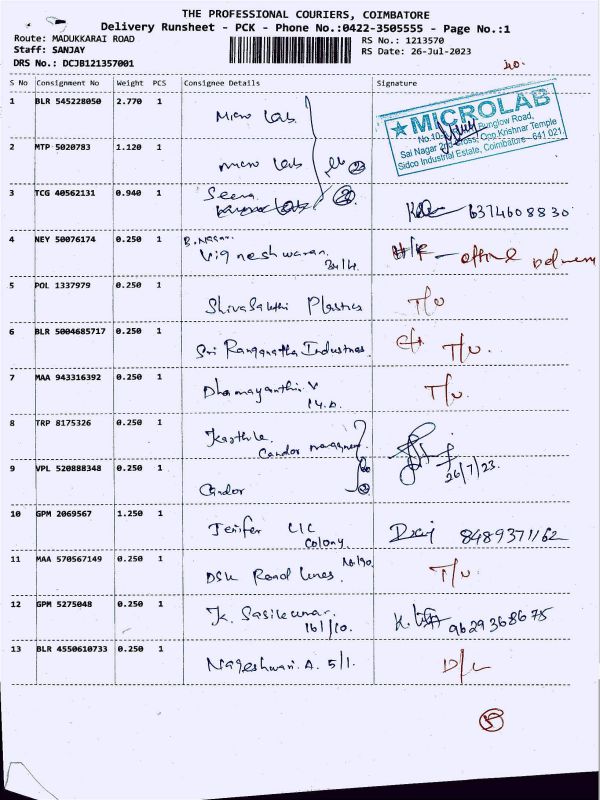 THE PROFESSIONAL COURIERS, COIMBATORE
Delivery Runsheet - PCK - Phone No.:0422-3505555 - Page No.:1
Route: MADUKKARAI ROAD
Staff: SANJAY
DRS No.: DCJB121357001
RS No.: 1213570
RS Date: 26-Jul-2023
S No Consignment No Weight PCS Consignee Details Signature
1 BLR 545228050 2.770 1 Micro Lab.
MICROLAB
Bunglow Road,
Sai Nagar 2nd Cross, Opp.Krishnar Temple
Sidco Industrial Estate, Coimbatore - 641 021.
2 MTP 5020783 1.120 1 micro Lab
3 TCG 40562131 0.940 1 Seena 6374608830
4 NEY 50076174 0.250 1 Vigneshwaran. 34/4.
5 POL 1337979 0.250 1 Shivasakthi Plastics T/U
6 BLR 5004685717 0.250 1 Sri Ranganatha Industries. T/U.
7 MAA 943316392 0.250 1 Dhamayanthi. V T/U.
8 TRP 8175326 0.250 1 Candor
26/7/23.
9 VPL 520888348 0.250 1 Candor
10 GPM 2069567 1.250 1 Jenifer LIC
Colony. 8489371162
11 MAA 570567149 0.250 1 No/90.
DSK Road Lines. T/U.
12 GPM 5275048 0.250 1 K. Sasikumar.
161/10. 9629368675
13 BLR 4550610733 0.250 1 Nageshwari. A. 5/1. D/L